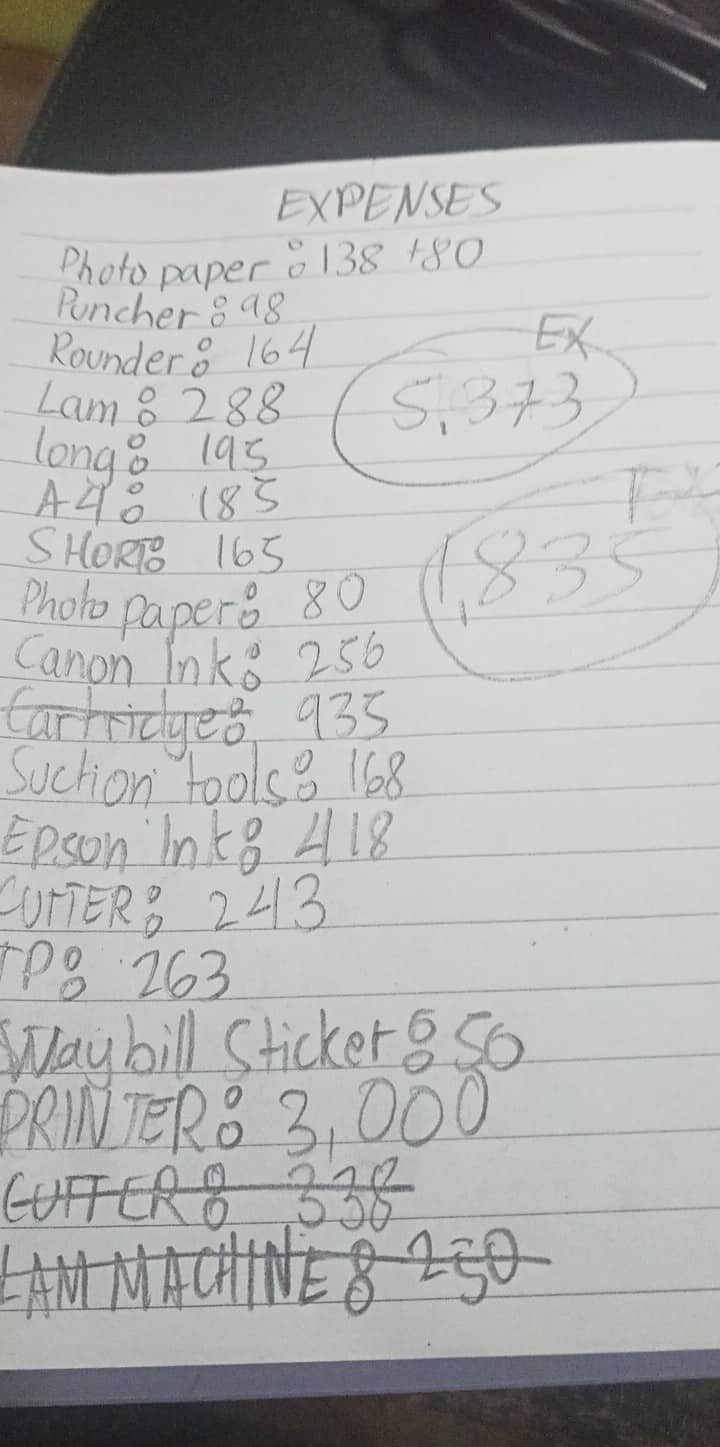 EXPENSES
Photo paper: 138 +80
Puncher: 98
Rounder: 164
EX
Lam: 288
5,373
long: 195
A4: 185
SHORT: 165
1,835
Photo paper: 80
Canon Ink: 256
Cartridge: 935
Suction tools: 168
Epson Ink: 418
CUTTER: 243
TP: 263
Waybill Sticker: 50
PRINTER: 3,000
CUTTER: 338
LAM MACHINE: 250